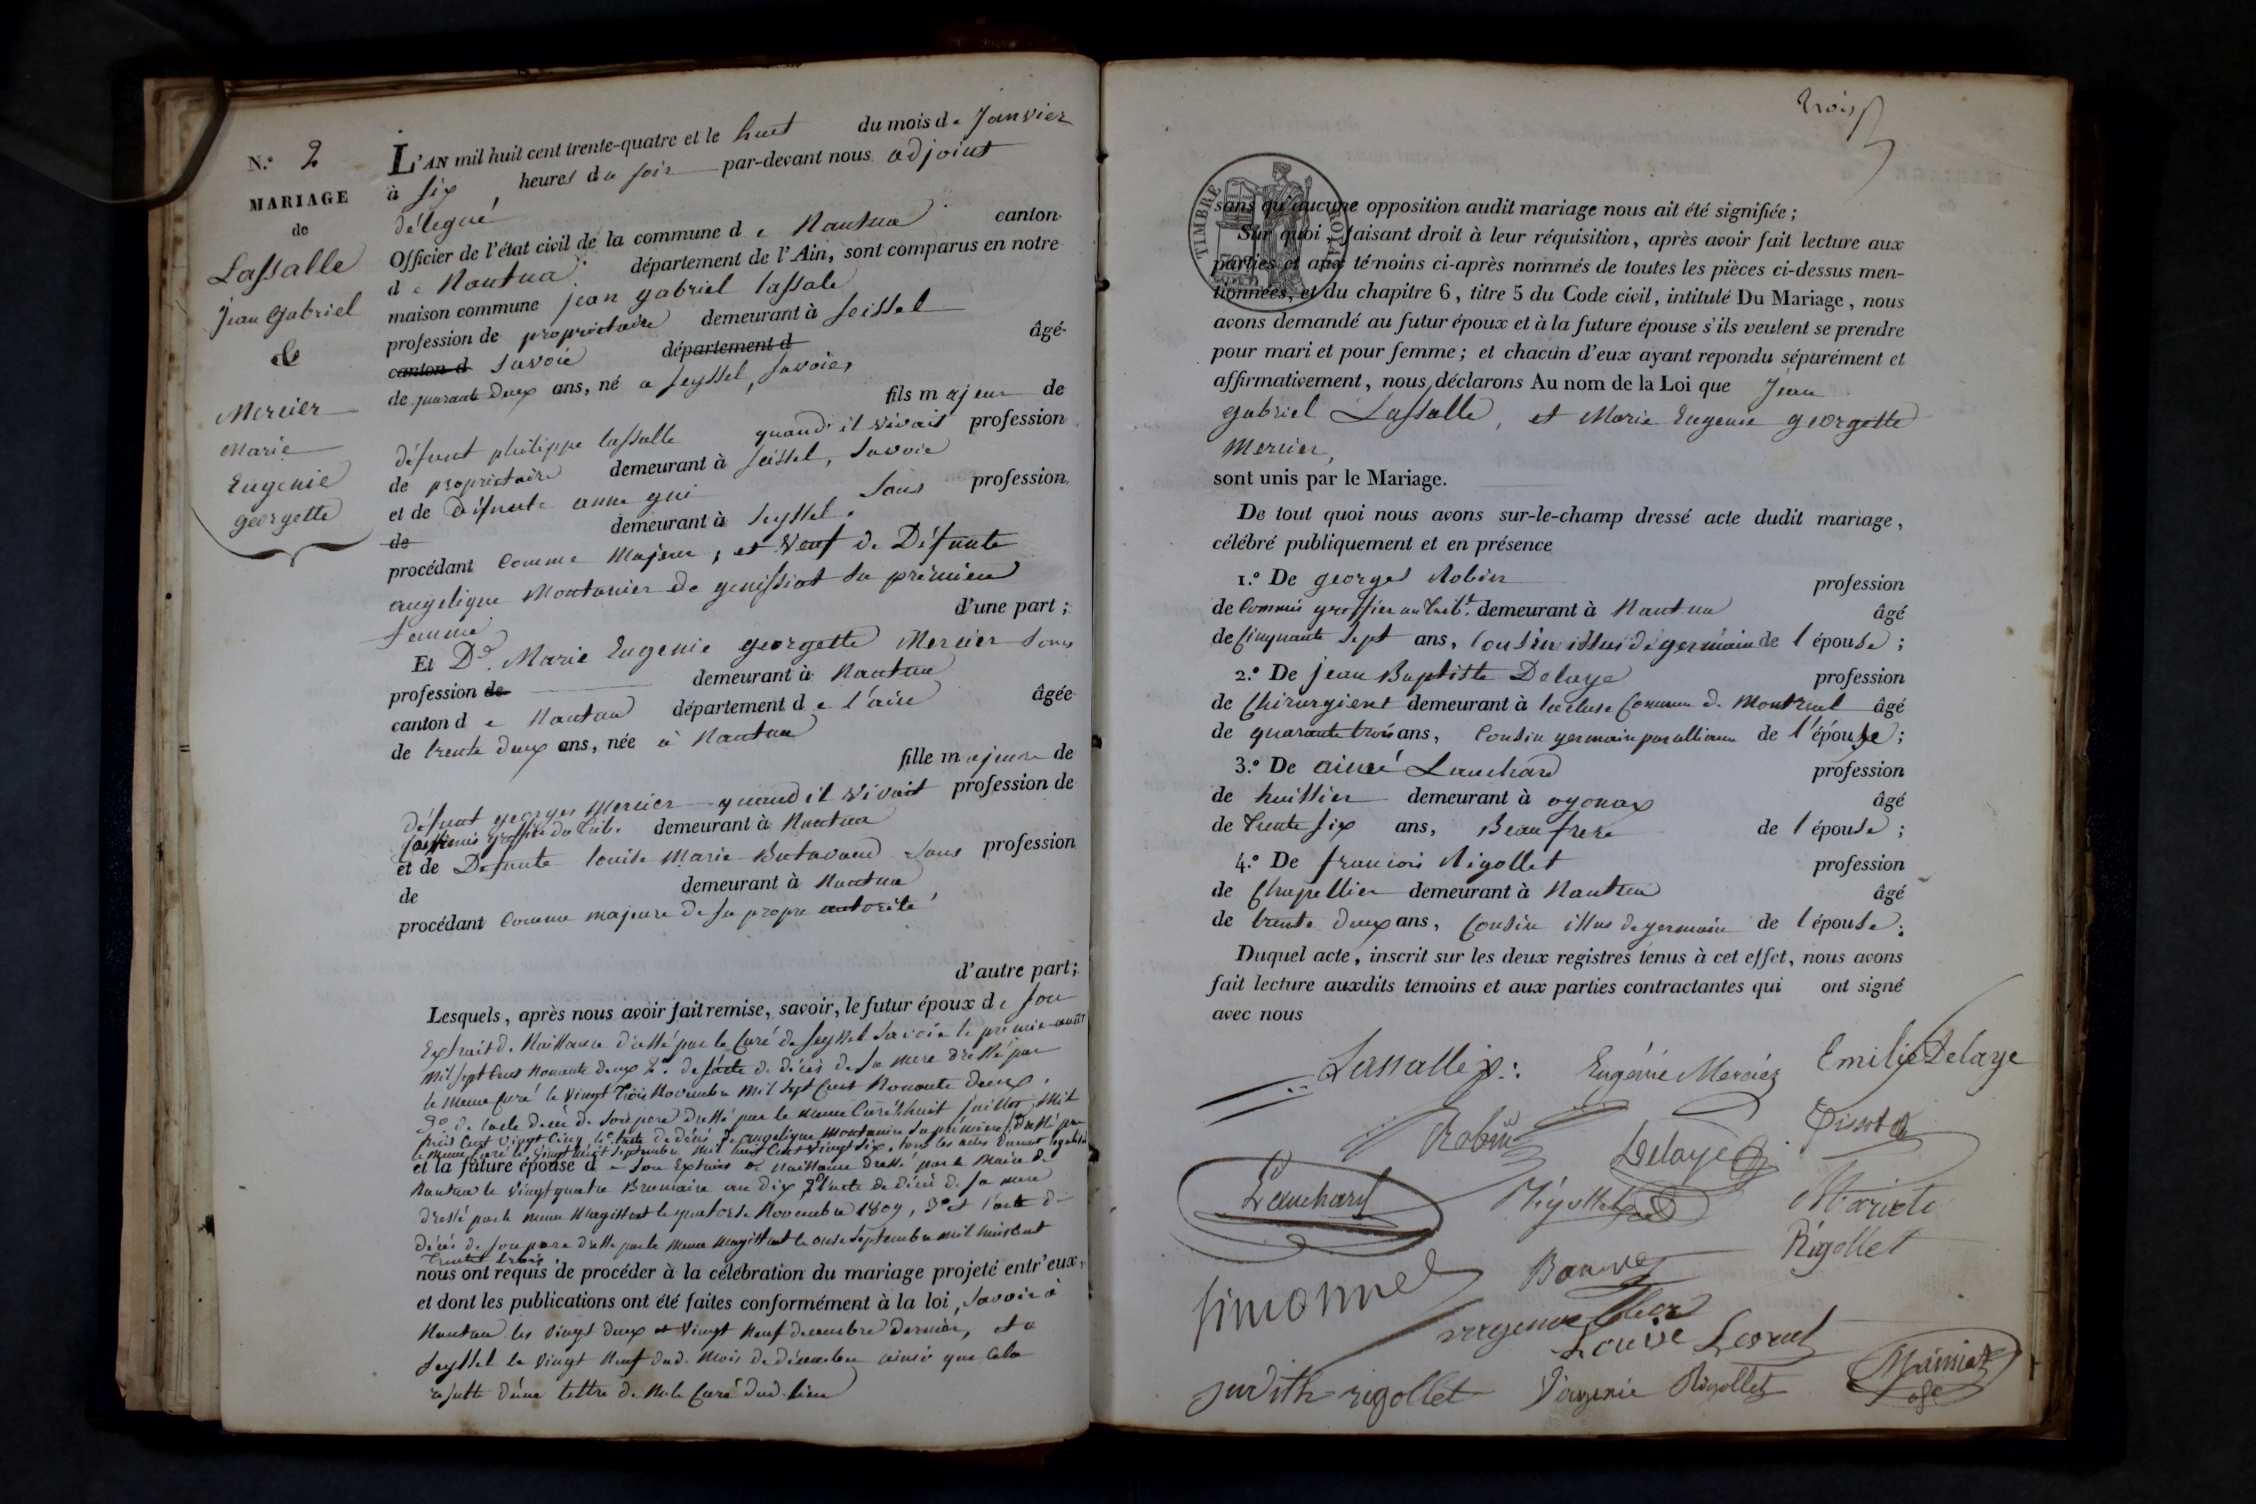 N.o 2
MARIAGE
de
Lassalle
Jean Gabriel
&
Mercier
Marie
Eugenie
georgette
L'AN mil huit cent trente-quatre et le huit du mois de Janvier
à six heures du soir par-devant nous adjoint
délegué
Officier de l'état civil de la commune de Nantua canton
de Nantua département de l'Ain, sont comparus en notre
maison commune jean gabriel lassale
profession de propriétaire demeurant à seissel
canton d savoie département d âgé
de quarante deux ans, né a seyssel, savoie,
fils majeur de
défunt philippe lassalle quand il vivait profession
de propriétaire demeurant à seissel, savoie
et de défunte anne gui sans profession
de demeurant à seyssel.
procédant comme majeur, et veuf de Défunte
angelique Montanier de genissiat sa prémiere
femme d'une part;
Et De. Marie Eugenie georgette Mercier sans
profession de demeurant à Nantua
canton de Nantua département de l'ain âgée
de trente deux ans, née à Nantua
fille majeure de
défunt georges Mercier quand il vivait profession de
Commis greffier du Trib. demeurant à Nantua
et de Defunte louise Marie Butavand sans profession
de demeurant à Nantua
procédant comme majeure de sa propre autorité,
d'autre part;
Lesquels, après nous avoir fait remise, savoir, le futur époux de son
Extrait de Naissance dressé par le Curé de Seyssel Savoie le premier août
mil sept cent nonante deux 2o. de l'acte de décès de sa mere dressé par
le meme Curé le vingt trois Novembre mil sept cent nonante deux,
3o. de l'acte de décès de son pere dressé par le meme Curé le huit juillet mil
huit cent vingt cinq, 4o. l'acte de décès de angelique Montanier sa première femme dressé par
le meme Curé le vingt huit septembre mil huit cent vingt six, tous les actes dument legalisés
et la future épouse de son Extrait de naissance dressé par le Maire de
Nantua le vingt quatre Brumaire an dix 2o l'acte de décès de sa mere
dressé par le meme Magistrat le quatorze Novembre 1809, 3o et l'acte de
décès de son pere dressé par le meme magistrat le onze septembre mil huit cent
trente trois
nous ont requis de procéder à la célébration du mariage projeté entr'eux,
et dont les publications ont été faites conformément à la loi, savoir à
Nantua les vingt deux et vingt neuf decembre dernier, et a
Seyssel le vingt neuf dud. mois de décembre ainsi que cela
résulte d'une lettre de Mr. le Curé dud. lieu
trois
TIMBRE ROYAL
sans qu'aucune opposition audit mariage nous ait été signifiée;
Sur quoi, faisant droit à leur réquisition, après avoir fait lecture aux
parties et aux témoins ci-après nommés de toutes les pièces ci-dessus men-
tionnées, et du chapitre 6, titre 5 du Code civil, intitulé Du Mariage, nous
avons demandé au futur époux et à la future épouse s'ils veulent se prendre
pour mari et pour femme; et chacun d'eux ayant repondu séparément et
affirmativement, nous déclarons Au nom de la Loi que Jean
gabriel Lassalle, et Marie Eugenie georgette
Mercier,
sont unis par le Mariage.
De tout quoi nous avons sur-le-champ dressé acte dudit mariage,
célébré publiquement et en présence
1.o De georges Robin profession
de Commis greffier au Tribt. demeurant à Nantua âgé
de cinquante sept ans, cousin issus de germain de l'épouse;
2.o De jean Baptiste Delaye profession
de Chirurgient demeurant à la cluse Commune de Montreal âgé
de quarante trois ans, cousin germain par alliance de l'épouse;
3.o De aimé Lauchard profession
de huissier demeurant à oyonax âgé
de trente six ans, Beau frere de l'épouse;
4.o De francois Rigollet profession
de Chapellier demeurant à Nantua âgé
de trente deux ans, cousin issus de germain de l'épouse.
Duquel acte, inscrit sur les deux registres tenus à cet effet, nous avons
fait lecture auxdits temoins et aux parties contractantes qui ont signé
avec nous
Lassalle Eugénie Mercier Emilie Delaye
Robin Delaye
Lauchard Rigollet Mariete
Rigollet
simonnet
Louise
judith rigollet Virginie Rigollet